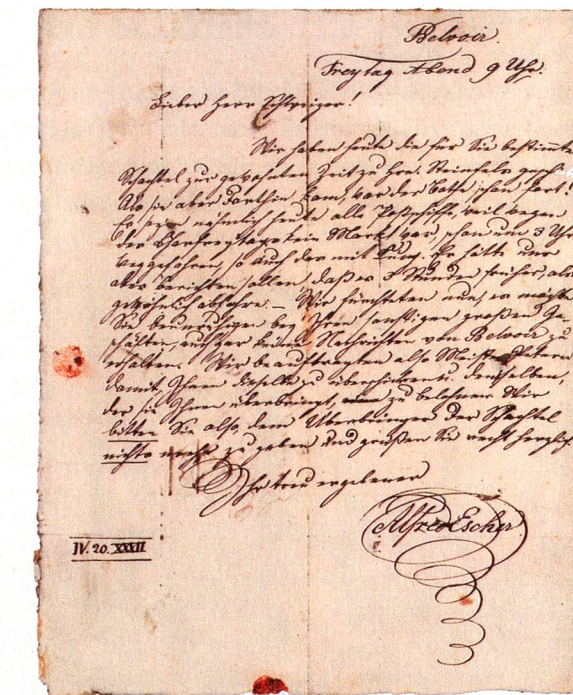 Belvoir.
Freytag Abend 9 Uhr.
Lieber Herr Schweizer!
Wir haben heute die für Sie bestimmte
Schachtel zur gewohnten Zeit zu Hrn. Steinfels
Als sie aber dorthin kam, war der Bothe schon fort!
Es seyen nähmlich heute alle Postschiffe, weil wegen
des Charfreytags kein Markt war, schon um 3 Uhr
weggefahren, so auch der mit Er hätte uns
aber berichten sollen, daß er 3 Stunden früher, als
gewöhnlich abfahre. – Wir fürchteten nun, es möchte
Sie beunruhigen bey Ihren sonstigen großen Ge-
schäften, keine Nachrichten von Belvoir zu
erhalten. Wir beauftragten also Meister
damit Ihnen dieselbe zu überschicken u. denselben,
der sie Ihnen überbringt, zu belohnen. Wir
bitten Sie also, dem Überbringer der Schachtel
nichts mehr zu geben und grüßen Sie recht herzlich
Ihr treu ergebener
Alfred Escher.
IV. 20. XXXII